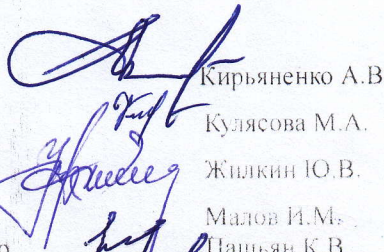 Кирьяненко А.В
Кулясова М.А.
Жилкин Ю.В.
Малов И.М.
Пашьян К.В.